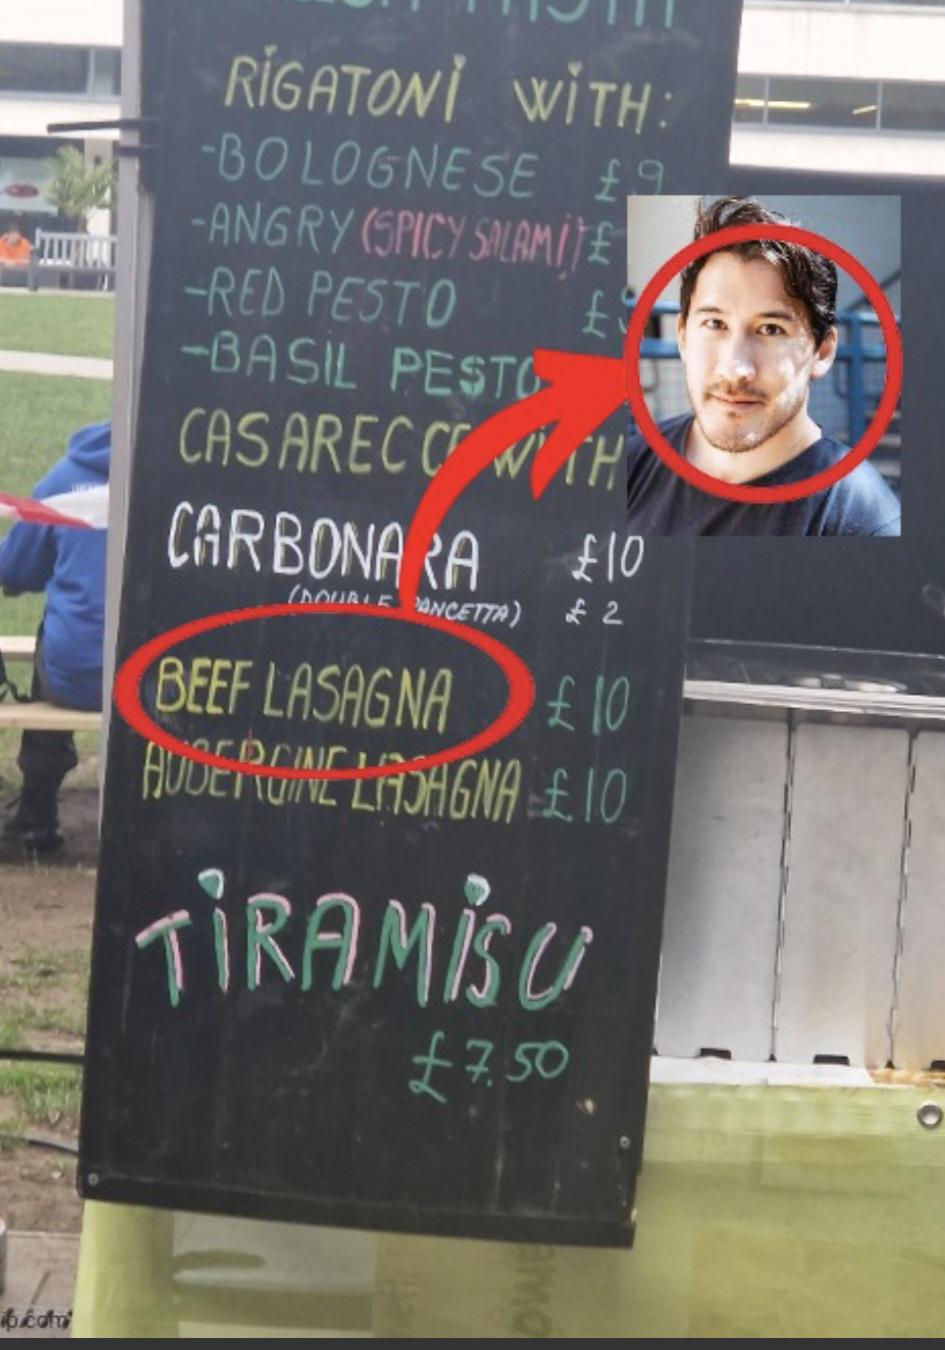 RIGATONI WITH:
-BOLOGNESE £9
-ANGRY (SPICY SALAMI) £
-RED PESTO £9
-BASIL PESTO
CASARECCE WITH
CARBONARA £10
(DOUBLE PANCETTA) £2
BEEF LASAGNA £10
AUBERGINE LASAGNA £10
TIRAMISU
£7.50